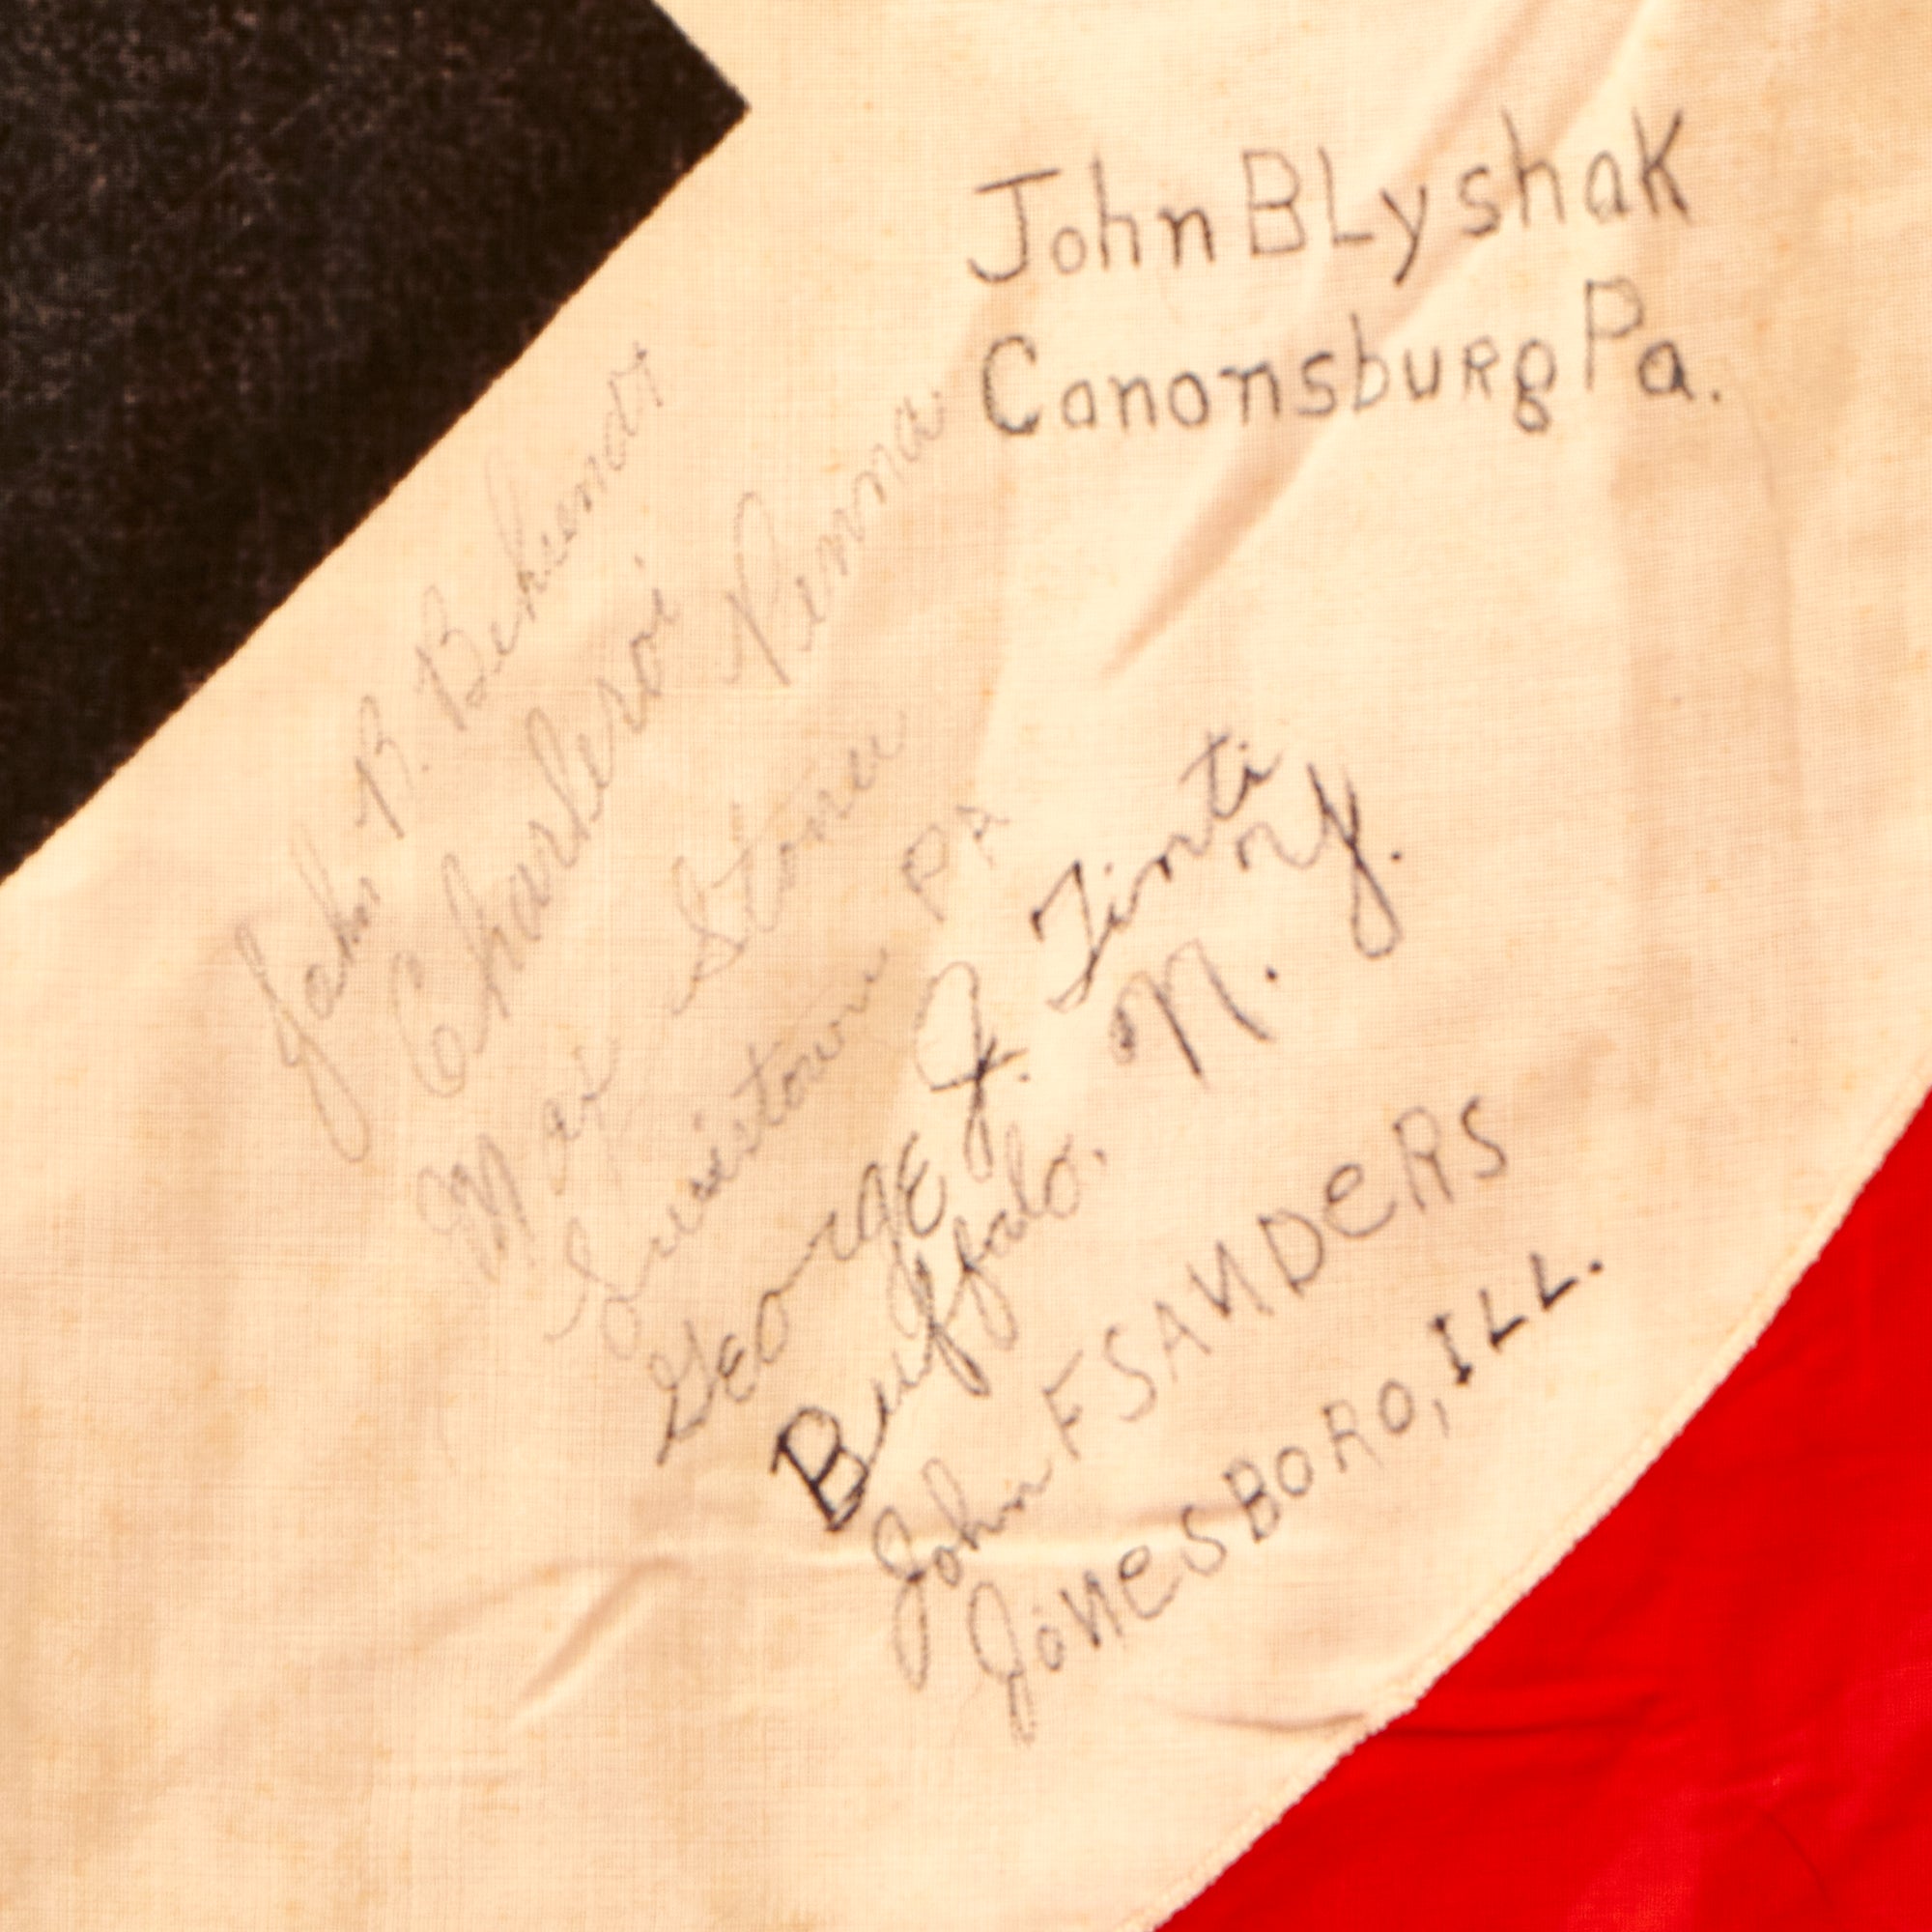 John BLyshak
Canonsburg Pa.
John B. Behrendt
Charleroi Penna
Max Stone
Lewistown PA
George J. Tinti
Buffalo. N. Y.
John F SANDERS
JONESBORO, ILL.